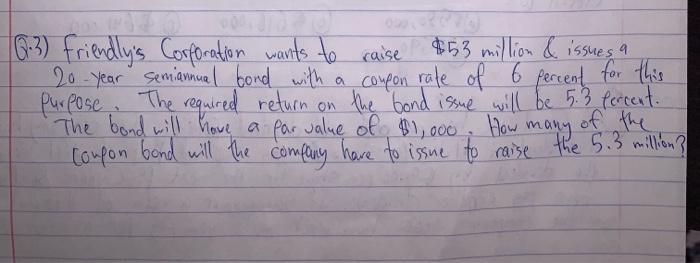 Q.3) Friendly's Corporation wants to raise $53 million & issues a
20-year semiannual bond with a coupon rate of 6 percent for this
purpose. The required return on the bond issue will be 5.3 percent.
The bond will have a par value of $1,000. How many of the
coupon bond will the company have to issue to raise the 5.3 million?